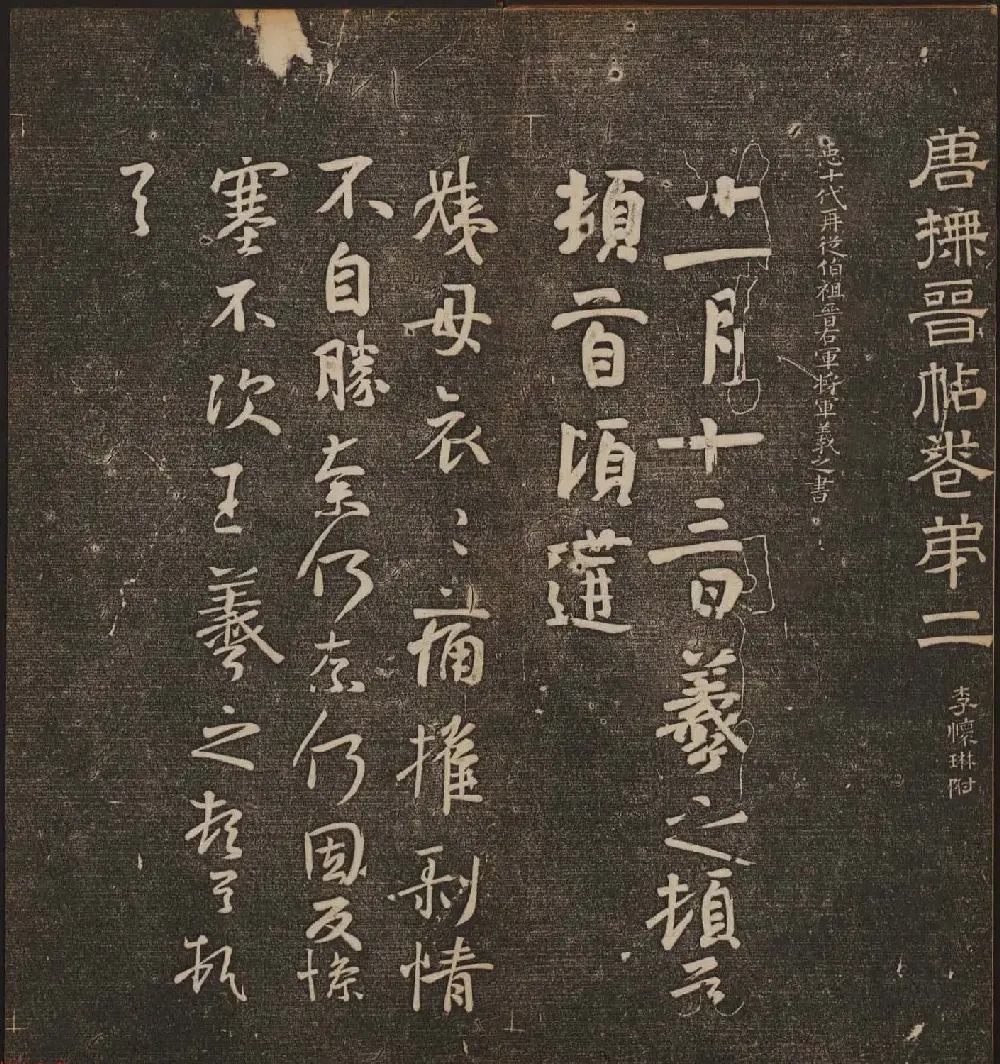 唐撫晉帖卷弟二 李懷琳附
十代再從伯祖晉右軍將軍羲之書
十一月十三日羲之頓首
頓首頃遘
姨母哀〻痛摧剥情
不自勝奈何奈何因反慘
塞不次王羲之頓首頓
首